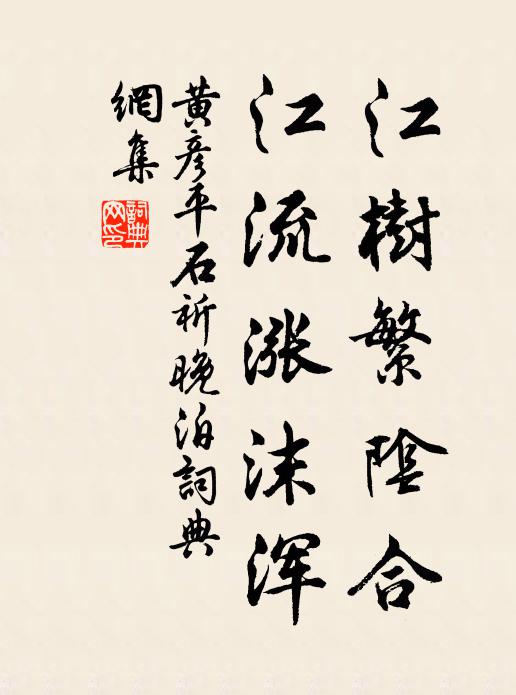 江樹繁陰合
江流漲沫浑
黃彦平石祈晚泊詞典
網集
詞典網印